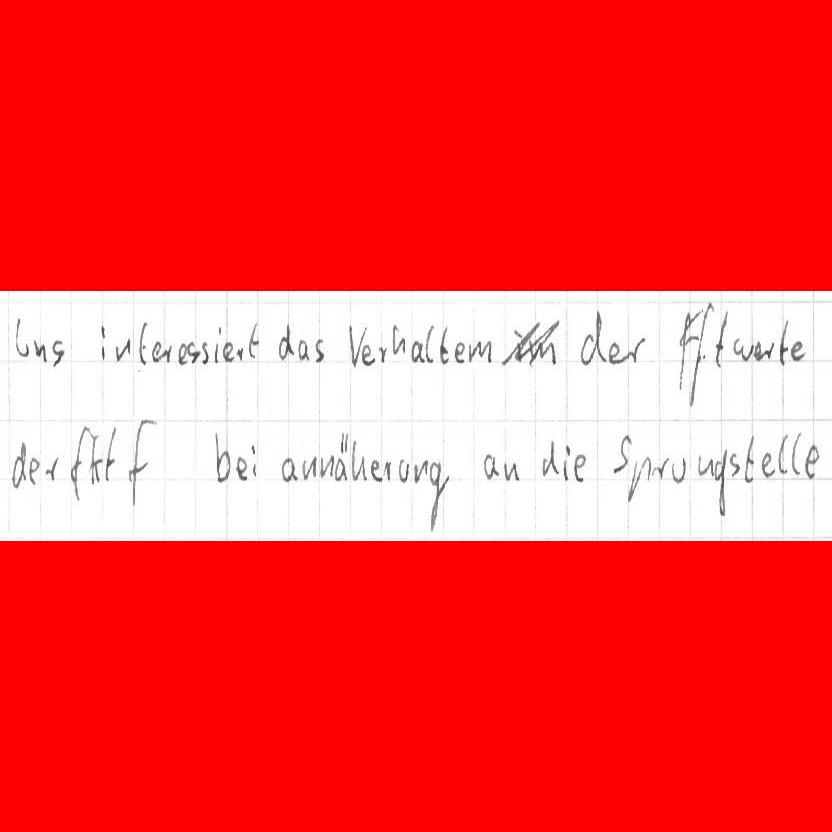 Uns interessiert das Verhaltem der Fktwerte
der fkt f bei annäherung an die Sprungstelle